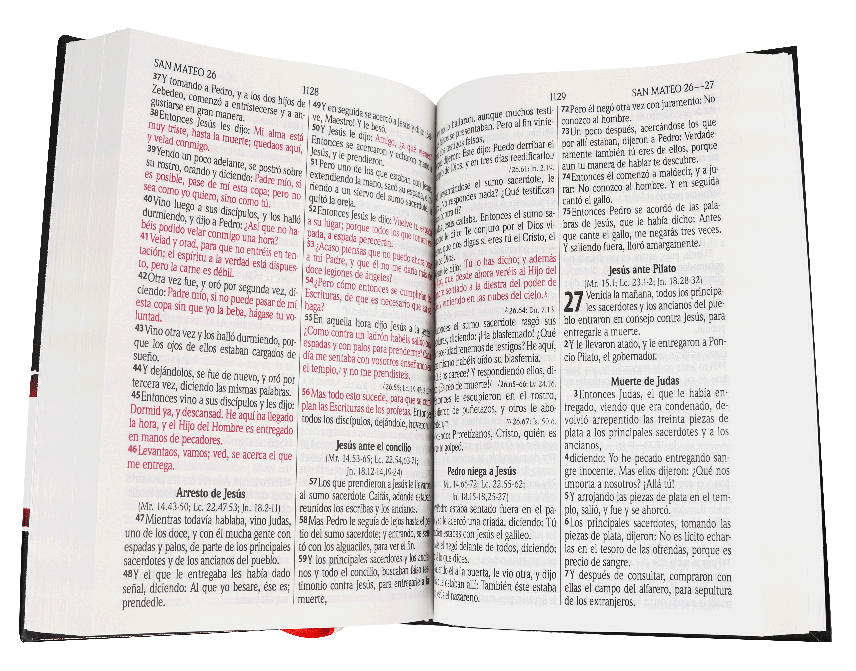 SAN MATEO 26
1128
37Y tomando a Pedro, y a los dos hijos de
Zebedeo, comenzó a entristecerse y a an-
gustiarse en gran manera.
38Entonces Jesús les dijo: Mi alma está
muy triste, hasta la muerte; quedaos aquí,
y velad conmigo.
39Yendo un poco adelante, se postró sobre
su rostro, orando y diciendo: Padre mío, si
es posible, pase de mí esta copa; pero no
sea como yo quiero, sino como tú.
40Vino luego a sus discípulos, y los halló
durmiendo, y dijo a Pedro: ¿Así que no ha-
béis podido velar conmigo una hora?
41Velad y orad, para que no entréis en ten-
tación; el espíritu a la verdad está dispues-
to, pero la carne es débil.
42Otra vez fue, y oró por segunda vez, di-
ciendo: Padre mío, si no puede pasar de mí
esta copa sin que yo la beba, hágase tu vo-
luntad.
43Vino otra vez y los halló durmiendo, por-
que los ojos de ellos estaban cargados de
sueño.
44Y dejándolos, se fue de nuevo, y oró por
tercera vez, diciendo las mismas palabras.
45Entonces vino a sus discípulos y les dijo:
Dormid ya, y descansad. He aquí ha llegado
la hora, y el Hijo del Hombre es entregado
en manos de pecadores.
46Levantaos, vamos; ved, se acerca el que
me entrega.
Arresto de Jesús
(Mr. 14.43-50; Lc. 22.47-53; Jn. 18.2-11)
47Mientras todavía hablaba, vino Judas,
uno de los doce, y con él mucha gente con
espadas y palos, de parte de los principales
sacerdotes y de los ancianos del pueblo.
48Y el que le entregaba les había dado
señal, diciendo: Al que yo besare, ése es;
prendedle.
49Y en seguida se acercó a Jesús y dijo:
ve, Maestro! Y le besó.
50Y Jesús le dijo: Amigo, ¿a qué vienes?
Entonces se acercaron y echaron mano
Jesús, y le prendieron.
51Pero uno de los que estaban con Jesús,
extendiendo la mano, sacó su espada, e
riendo a un siervo del sumo sacerdote,
quitó la oreja.
52Entonces Jesús le dijo: Vuelve tu espada
a su lugar; porque todos los que tomen
pada, a espada perecerán.
53¿Acaso piensas que no puedo ahora
a mi Padre, y que él no me daría más de
doce legiones de ángeles?
54¿Pero cómo entonces se cumplirían
Escrituras, de que es necesario que
haga?
55En aquella hora dijo Jesús a la gente:
¿Como contra un ladrón habéis salido con
espadas y con palos para prenderme? Cada
día me sentaba con vosotros enseñando en
el templo, y no me prendisteis.
56Mas todo esto sucede, para que se cum-
plan las Escrituras de los profetas. Entonces
todos los discípulos, dejándole, huyeron.
Jesús ante el concilio
(Mr. 14.53-65; Lc. 22.54,63-71;
Jn. 18.12-14,19-24)
57Los que prendieron a Jesús le llevaron
al sumo sacerdote Caifás, adonde estaban
reunidos los escribas y los ancianos.
58Mas Pedro le seguía de lejos hasta el pa-
tio del sumo sacerdote; y entrando, se sen-
tó con los alguaciles, para ver el fin.
59Y los principales sacerdotes y los ancia-
nos y todo el concilio, buscaban falso tes-
timonio contra Jesús, para entregarle a la
muerte,
1129
SAN MATEO 26—27
hallaron, aunque muchos testi-
se presentaban. Pero al fin vinie-
testigos falsos,
dijeron: Éste dijo: Puedo derribar el
de Dios, y en tres días reedificarlo.
26.61: Jn. 2.19.
levantándose el sumo sacerdote, le
¿No respondes nada? ¿Qué testifican
contra ti?
callaba. Entonces el sumo sa-
le dijo: Te conjuro por el Dios vi-
que nos digas si eres tú el Cristo, el
de Dios.
le dijo: Tú lo has dicho; y además
que desde ahora veréis al Hijo del
sentado a la diestra del poder de
y viniendo en las nubes del cielo.
26.64: Dn. 7.13.
el sumo sacerdote rasgó sus
diciendo: ¡Ha blasfemado! ¿Qué
necesidad tenemos de testigos? He aquí,
mismo habéis oído su blasfemia.
os parece? Y respondiendo ellos, di-
¡Es reo de muerte! 26.65-66: Lv. 24.16.
le escupieron en el rostro,
dieron de puñetazos, y otros le abo-
26.67: Is. 50.6.
diciendo: Profetízanos, Cristo, quién es
que te golpeó.
Pedro niega a Jesús
Mr. 14.66-72; Lc. 22.55-62;
Jn. 18.15-18,25-27)
Pedro estaba sentado fuera en el pa-
se le acercó una criada, diciendo: Tú
estabas con Jesús el galileo.
él negó delante de todos, diciendo:
lo que dices.
él a la puerta, le vio otra, y dijo
estaban allí: También éste estaba
el nazareno.
72Pero él negó otra vez con juramento: No
conozco al hombre.
73Un poco después, acercándose los que
por allí estaban, dijeron a Pedro: Verdade-
ramente también tú eres de ellos, porque
aun tu manera de hablar te descubre.
74Entonces él comenzó a maldecir, y a ju-
rar: No conozco al hombre. Y en seguida
cantó el gallo.
75Entonces Pedro se acordó de las pala-
bras de Jesús, que le había dicho: Antes
que cante el gallo, me negarás tres veces.
Y saliendo fuera, lloró amargamente.
Jesús ante Pilato
(Mr. 15.1; Lc. 23.1-2; Jn. 18.28-32)
27 Venida la mañana, todos los principa-
les sacerdotes y los ancianos del pue-
blo entraron en consejo contra Jesús, para
entregarle a muerte.
2Y le llevaron atado, y le entregaron a Pon-
cio Pilato, el gobernador.
Muerte de Judas
3Entonces Judas, el que le había en-
tregado, viendo que era condenado, de-
volvió arrepentido las treinta piezas de
plata a los principales sacerdotes y a los
ancianos,
4diciendo: Yo he pecado entregando san-
gre inocente. Mas ellos dijeron: ¿Qué nos
importa a nosotros? ¡Allá tú!
5Y arrojando las piezas de plata en el tem-
plo, salió, y fue y se ahorcó.
6Los principales sacerdotes, tomando las
piezas de plata, dijeron: No es lícito echar-
las en el tesoro de las ofrendas, porque es
precio de sangre.
7Y después de consultar, compraron con
ellas el campo del alfarero, para sepultura
de los extranjeros.